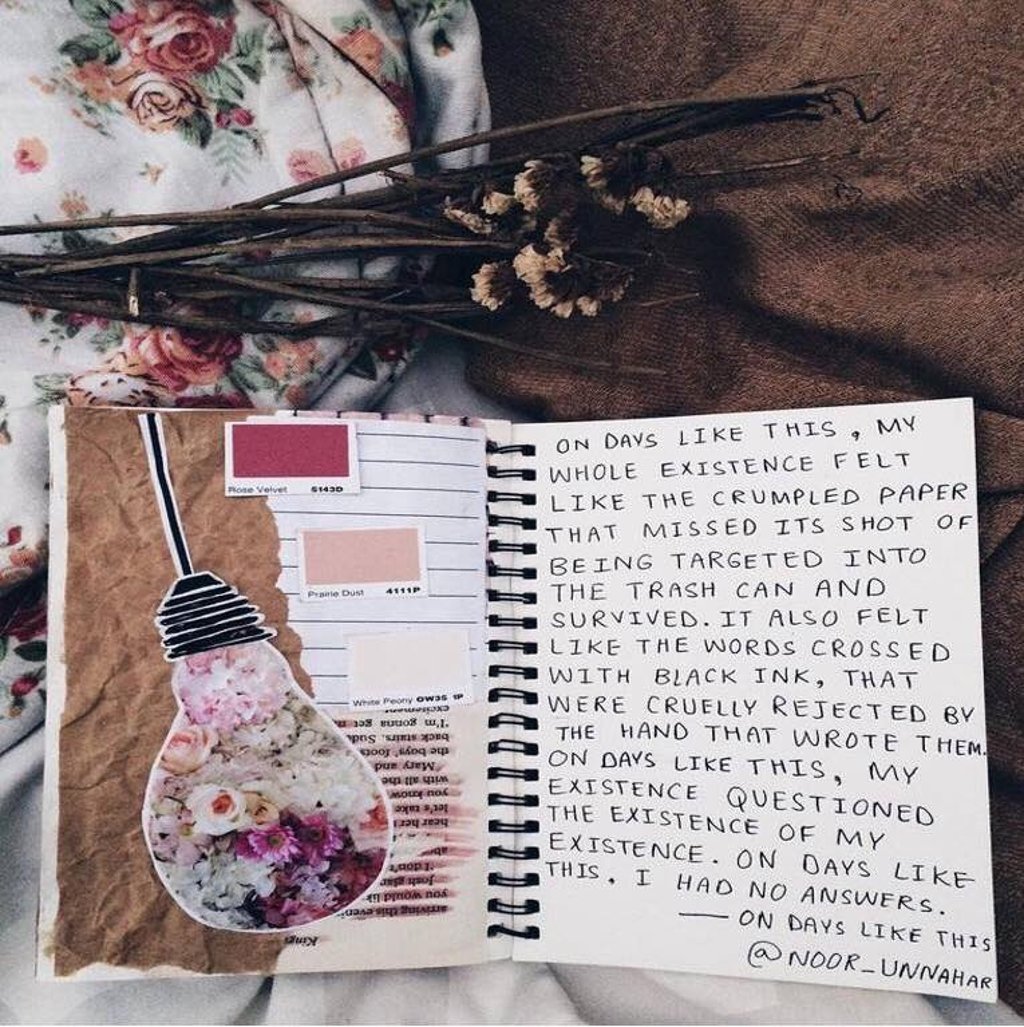 Rose Velvet 5143D
Prairie Dust 4111P
White Peony OW35 1P
excitement
"I'm gonna get
back stairs. Sudd
the boys' foots
Mary and
with all the
you know
let's take
hear her
"I don't
Josh glan
you would lik
arriving this evenin
Kings
ON DAYS LIKE THIS, MY
WHOLE EXISTENCE FELT
LIKE THE CRUMPLED PAPER
THAT MISSED ITS SHOT OF
BEING TARGETED INTO
THE TRASH CAN AND
SURVIVED. IT ALSO FELT
LIKE THE WORDS CROSSED
WITH BLACK INK, THAT
WERE CRUELLY REJECTED BY
THE HAND THAT WROTE THEM.
ON DAYS LIKE THIS, MY
EXISTENCE QUESTIONED
THE EXISTENCE OF MY
EXISTENCE. ON DAYS LIKE
THIS, I HAD NO ANSWERS.
— ON DAYS LIKE THIS
@NOOR_UNNAHAR